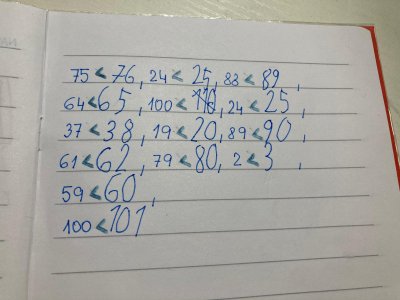 75 < 76, 24 < 25, 88 < 89,
64 < 65, 100 < 24 < 25,
37 < 38, 19 < 20, 89 < 90,
61 < 62, 79 < 80, 2 < 3,
59 < 60,
100 < 101